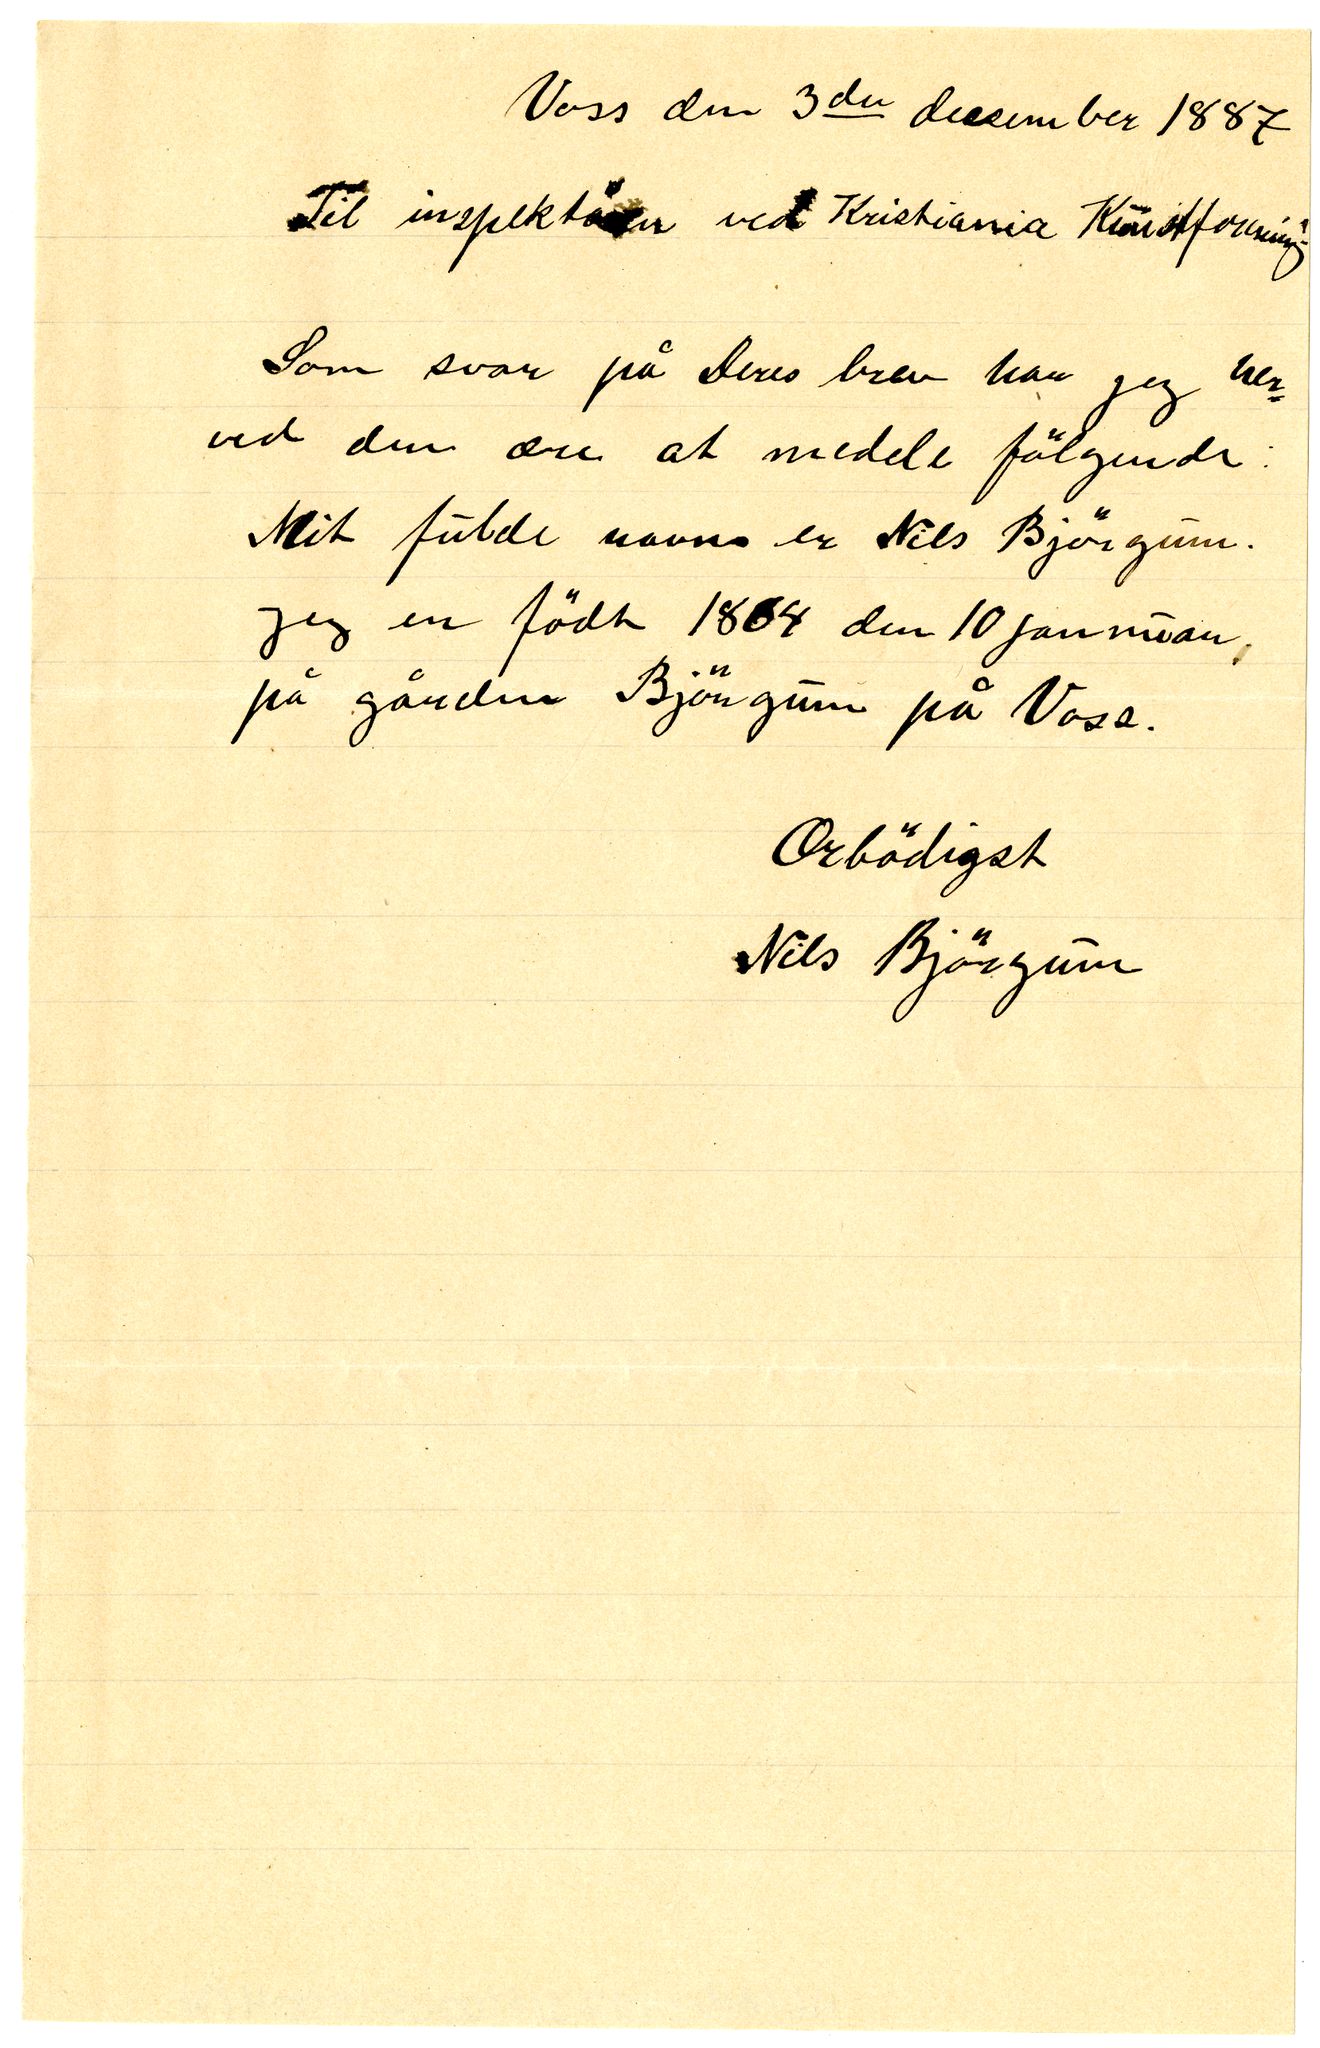 Voss den 3den desember 1887
Til inspektören ved Kristiania Kunstforening
Som svar på Deres brev har jeg her=
ved den ære at medele fölgende:
Mit fulde navn er Nils Björgum.
Jeg er född 1864 den 10 januuar,
på gården Björgum på Voss.
Ærbödigst
Nils Björgum